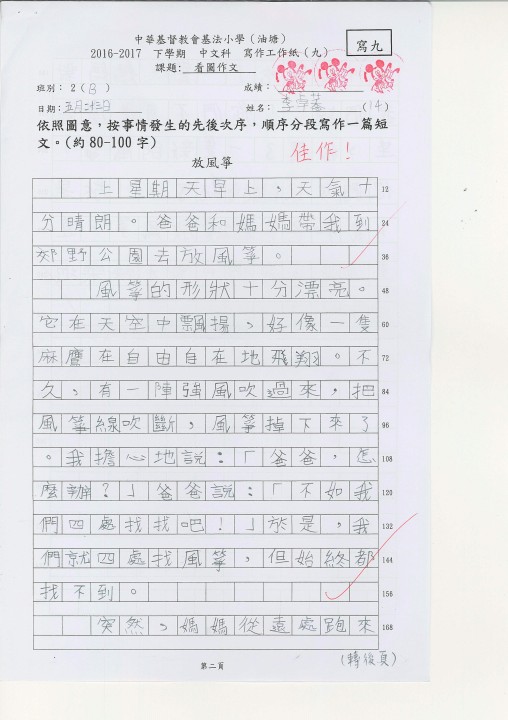 中華基督教會基法小學（油塘）
寫九
2016-2017 下學期 中文科 寫作工作紙（九）
課題：看圖作文
班別：2（B） 成績：
日期：五月二十三日 姓名：李卓蓁（14）
依照圖意，按事情發生的先後次序，順序分段寫作一篇短
文。(約 80-100 字)
佳作！
放風箏
上星期天早上，天氣十 12
分晴朗。爸爸和媽媽帶我到 24
郊野公園去放風箏。 36
風箏的形狀十分漂亮。 48
它在天空中飄揚，好像一隻 60
麻鷹在自由自在地飛翔。不 72
久，有一陣強風吹過來，把 84
風箏線吹斷，風箏掉下來了 96
。我擔心地說：「爸爸，怎 108
麼辦？」爸爸說：「不如我 120
們四處找找吧！」於是，我 132
們就四處找風箏，但始終都 144
找不到。 156
突然，媽媽從遠處跑來 168
（轉後頁）
第二頁